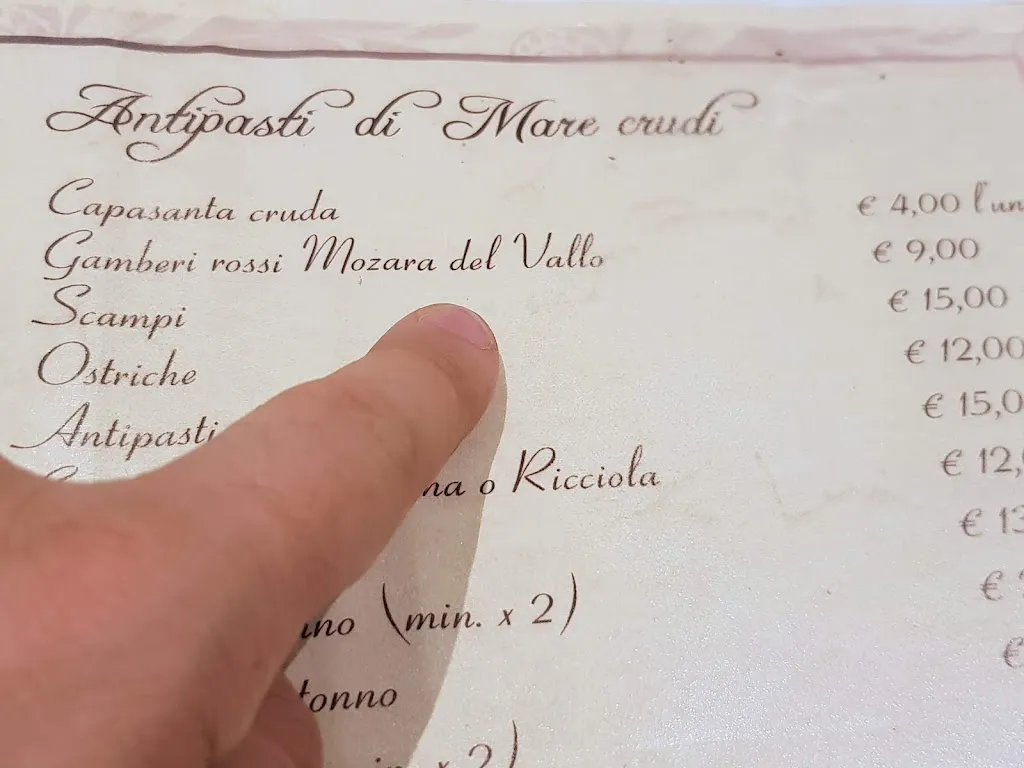 Antipasti di Mare crudi
Capasanta cruda € 4,00 l'un
Gamberi rossi Mozara del Vallo € 9,00
Scampi € 15,00
Ostriche € 12,00
Antipasti € 15,0
o Ricciola € 12,
€ 13
(min. x 2) €
tonno €
x 2)